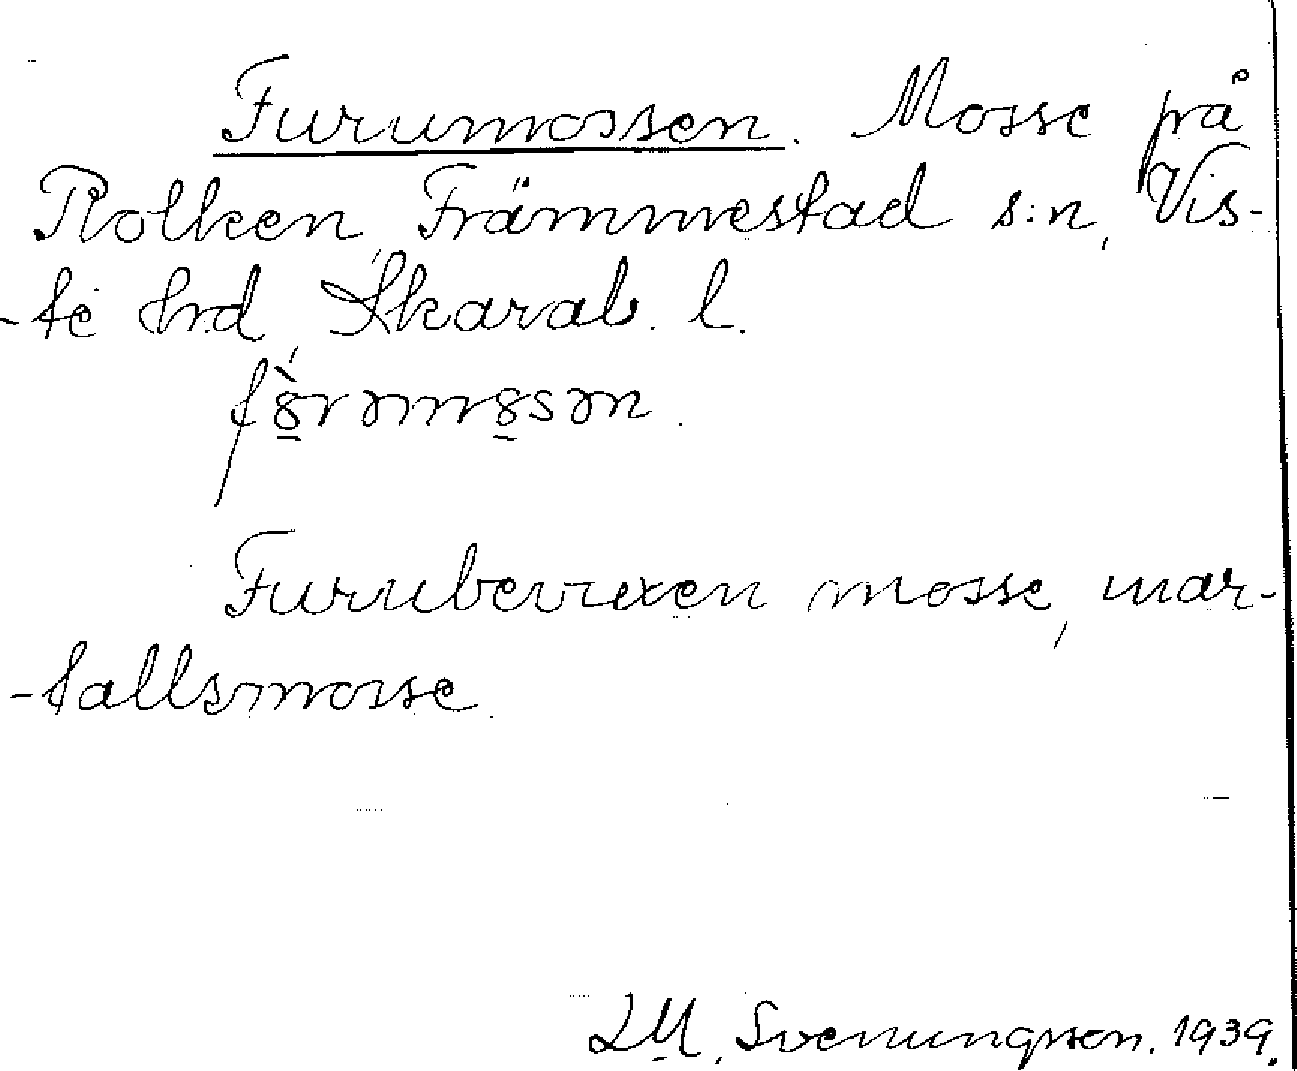 Furumossen. Mosse på
Rolken, Främmestad s:n, Vis-
-te hrd, Skarab. l.
fo̱̊̀rəmo̱̊sən.
Furubevuxen mosse, mar-
-tallsmosse.
L M. Svenungsson. 1939.